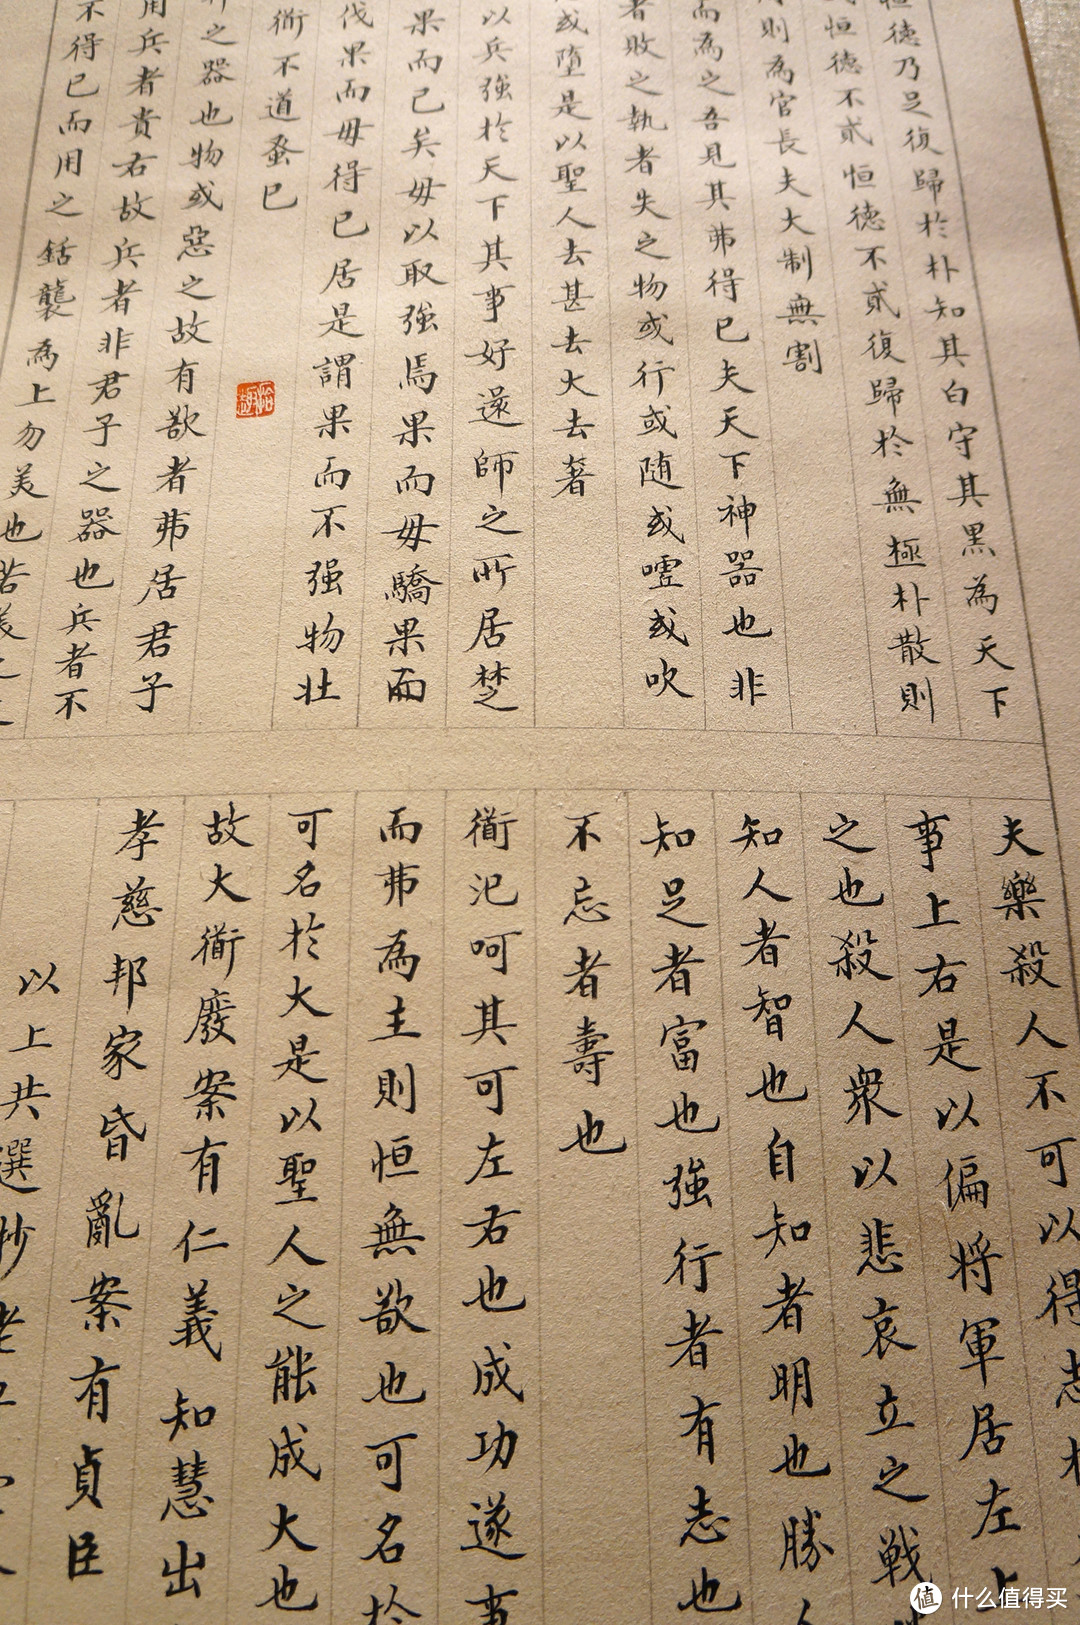 恒德乃足復歸於朴知其白守其黑為天下
恒德不貳恒德不貳復歸於無極朴散則
則為官長夫大制無割
而為之吾見其弗得已夫天下神器也非
者敗之執者失之物或行或隨或噓或吹
或墮是以聖人去甚去大去奢
以兵強於天下其事好還師之所居楚
果而已矣毋以取強焉果而毋驕果而
伐果而毋得已居是謂果而不强物壮
衜不道蚤已
之器也物或惡之故有欲者弗居君子
用兵者貴右故兵者非君子之器也兵者不
不得已而用之銛襲為上勿美也若美之
夫樂殺人不可以得志
事上右是以偏将軍居左上
之也殺人衆以悲哀立之戦
知人者智也自知者明也勝人
知足者富也強行者有志也
不忘者壽也
衜氾呵其可左右也成功遂事
而弗為主則恒無欲也可名於
可名於大是以聖人之能成大也
故大衜廢案有仁義知慧出
孝慈邦家昏亂案有貞臣
以上共選抄老子
值 什么值得买